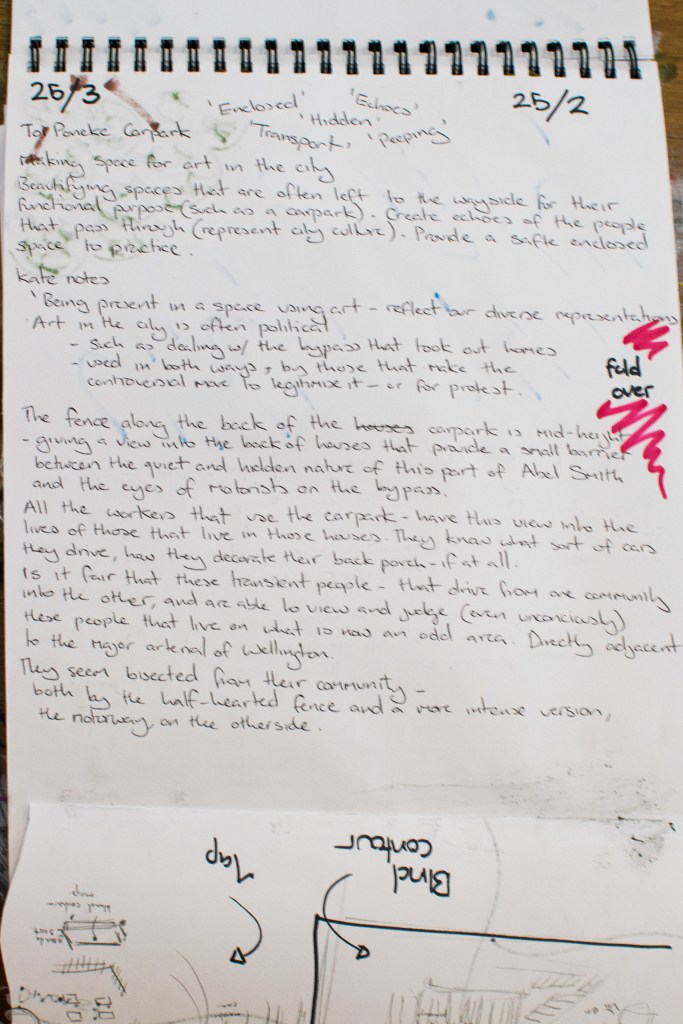 25/3
25/2
'Enclosed' 'Echoes'
'Hidden'
'Transport, 'peeping'
Toi Poneke Carpark
Making space for art in the city
Beautifying spaces that are often left to the wayside for their
functional purpose (such as a carpark). Create echoes of the people
that pass through (represent city culture). Provide a safe enclosed
space to practice.
Kate notes
'Being present in a space using art - reflect our diverse representations
Art in the city is often political
- such as dealing w/ the bypass that took out homes
- used in both ways, by those that make the
controversial move to legitimise it - or for protest.
fold
over
The fence along the back of the houses carpark is mid-height
- giving a view into the back of houses that provide a small barrier
between the quiet and hidden nature of this part of Abel Smith
and the eyes of motorists on the bypass.
All the workers that use the carpark - have this view into the
lives of those that live in those houses. They know what sort of cars
they drive, how they decorate their back porch - if at all.
Is it fair that these transient people - that drive from one community
into the other, and are able to view and judge (even unconciously)
these people that live on what is now an odd area. Directly adjacent
to the major arterial of Wellington.
They seem bisected from their community -
both by the half-hearted fence and a more intense version,
the motorway on the otherside.
Blind
contour